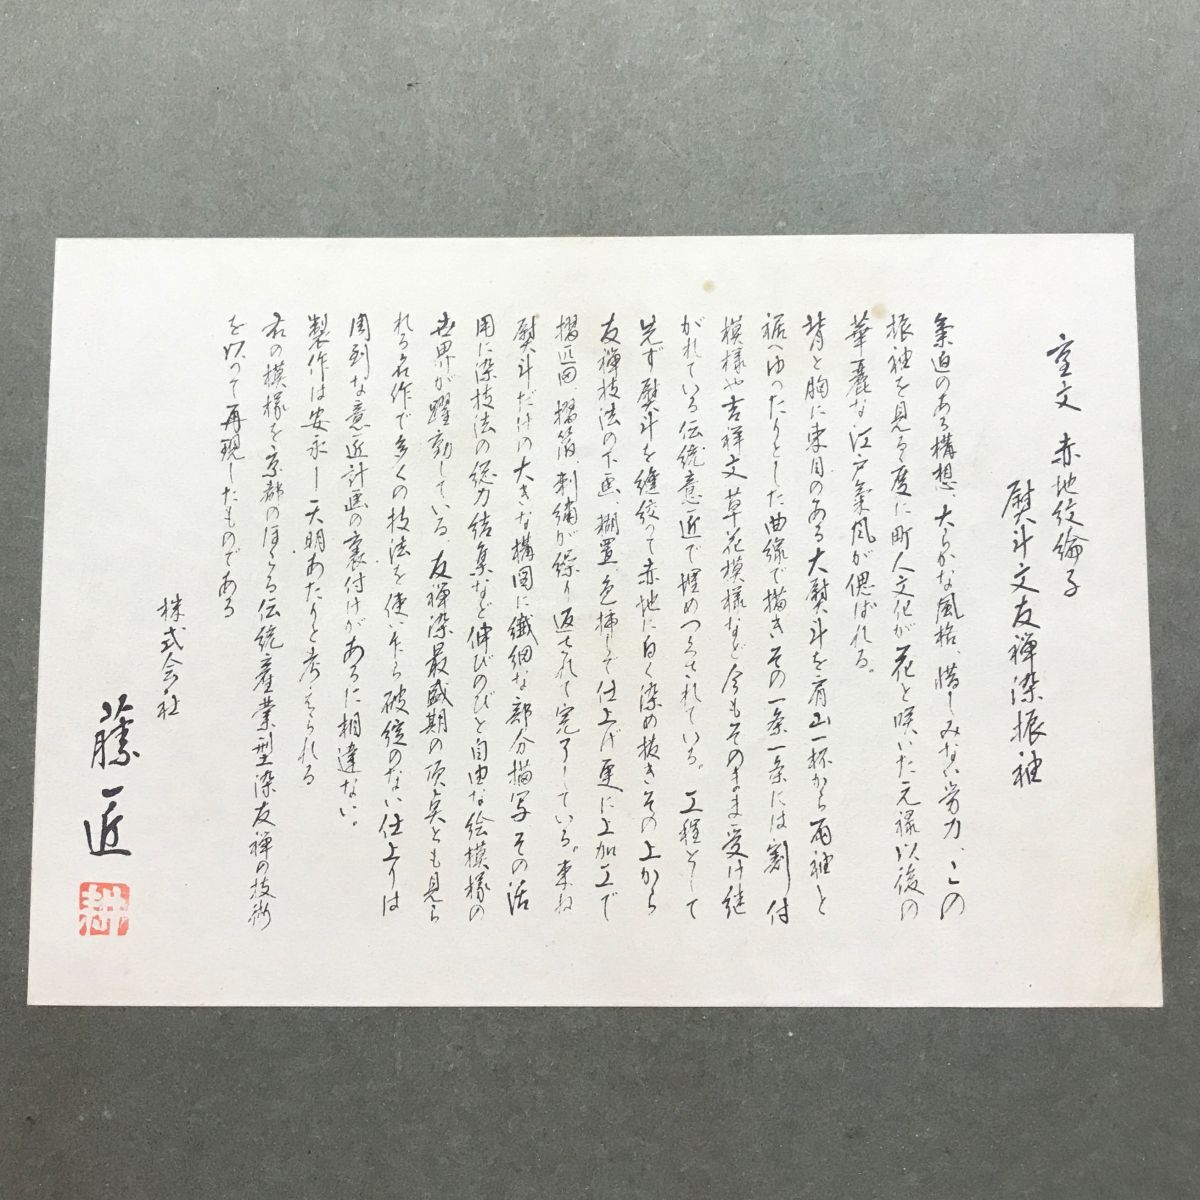 重文 赤地紋綸子
熨斗文友禅染振袖
気迫のある構想、大らかな風格、惜しみない労力、この
振袖を見る度に町人文化が花と咲いた元禄以後の
華麗な江戸気風が偲ばれる。
背と胸に束目のある大熨斗を肩山一杯から両袖と
裾へゆったりとした曲線で描きその一条一条には割付
模様や吉祥文草花模様など今もそのまま受け継
がれている伝統意匠で埋めつくされている。工程として
先ず熨斗を縫絞って赤地に白く染め抜きその上から
友禅技法の下画、糊置、色挿しで仕上げ更に上加工で
摺匹田、摺箔、刺繍が繰り返されて完了している。束ね
熨斗だけの大きな構図に繊細な部分描写その活
用に染技法の総力結集など伸びのびと自由な絵模様の
世界が躍動している、友禅染最盛期の頂点とも見ら
れる名作で多くの技法を使い乍ら破綻のない仕上りは
周到な意匠計画の裏付けがあるに相違ない。
製作は安永―天明あたりと考えられる
右の模様を京都のほこる伝統産業型染友禅の技術
を以って再現したものである
株式会社
藤匠
耕